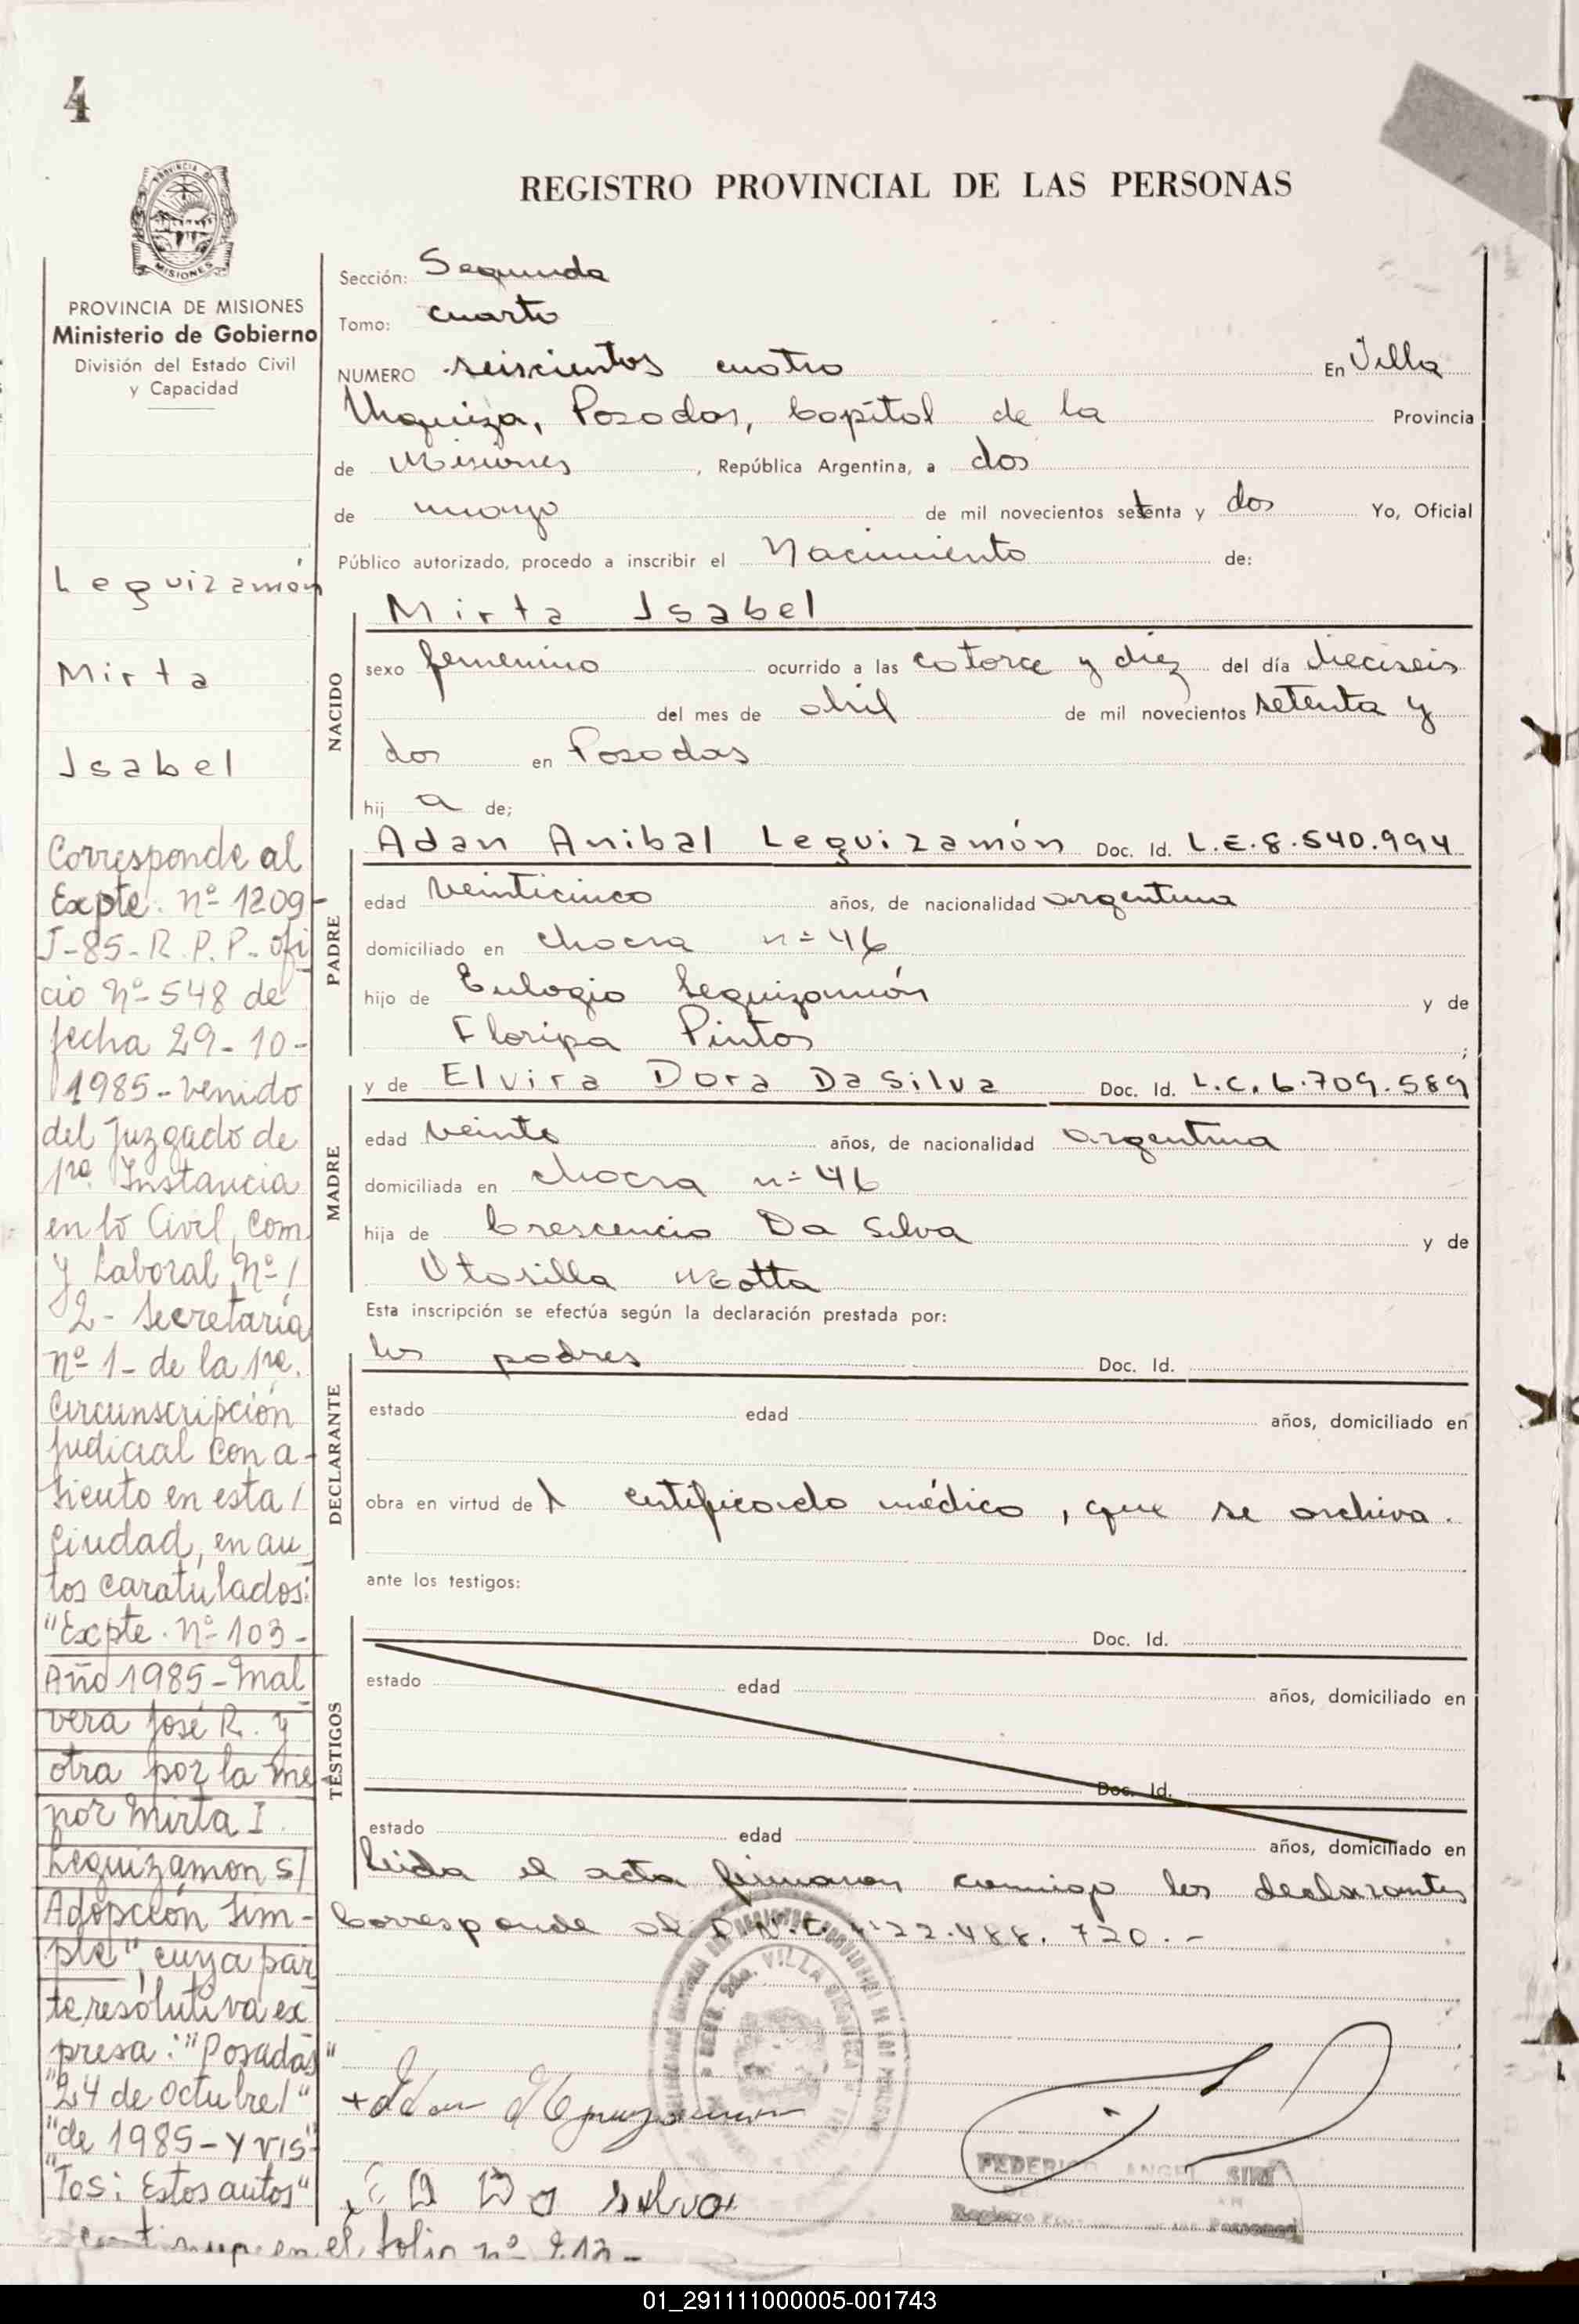 4
PROVINCIA DE
MISIONES
REGISTRO PROVINCIAL DE LAS PERSONAS
PROVINCIA DE MISIONES
Ministerio de Gobierno
División del Estado Civil
y Capacidad
Leguizamón
Mirta
Isabel
Corresponde al
Expte. nº 1209-
J-85-R.P.P.- ofi
cio nº 548 de
fecha 29-10-
1985-venido
del Juzgado de
1ra. Instancia
en lo Civil, Com.
y Laboral nº /
2- Secretaría
nº 1- de la 1ra.
Circunscripción
Judicial con a-
siento en esta /
Ciudad, en au
tos caratulados:
"Expte. nº 103-
Año 1985-Mal
vera José R. y
otra por la me
por Mirta I.
Leguizamon s/
Adopción Sim-
ple", cuya par
te resolutiva ex
presa: "Posadas"
"24 de octubre/"
"de 1985-Y VIS-
"Tos: Estos autos"
en el folio nº 212-
Sección: Segunda
Tomo: cuarto
NUMERO seiscientos cuatro En Villa
Urquiza, Posadas, Capital de la Provincia
de Misiones, República Argentina, a dos
de mayo de mil novecientos setenta y dos Yo, Oficial
Público autorizado, procedo a inscribir el Nacimiento de:
NACIDO
Mirta Isabel
sexo femenino ocurrido a las catorce y diez del día dieciseis
del mes de abril de mil novecientos setenta y
dos en Posadas
hij a de;
PADRE
Adan Anibal Leguizamón Doc. Id. L.E.8.540.994
edad veinticinco años, de nacionalidad argentina
domiciliado en chacra nº 46
hijo de Eulogio Leguizamón y de
Floripa Pintos ;
MADRE
y de Elvira Dora Da Silva Doc. Id. L.C.6.709.589
edad veinte años, de nacionalidad argentina
domiciliada en chacra nº 46
hija de Crescencio Da Silva y de
Otasilla Motta
Esta inscripción se efectúa según la declaración prestada por:
DECLARANTE
los padres Doc. Id.
estado edad años, domiciliado en
obra en virtud de l certificado médico, que se archiva.
ante los testigos:
TESTIGOS
Doc. Id.
estado edad años, domiciliado en
Doc. Id.
estado edad años, domiciliado en
leida el acta firmaron conmigo los declarantes
Corresponde al D.N.I. nº 22.488.720.-
VILLA URQUIZA
E D Da silva
FEDERICO ANGEL
01_291111000005-001743